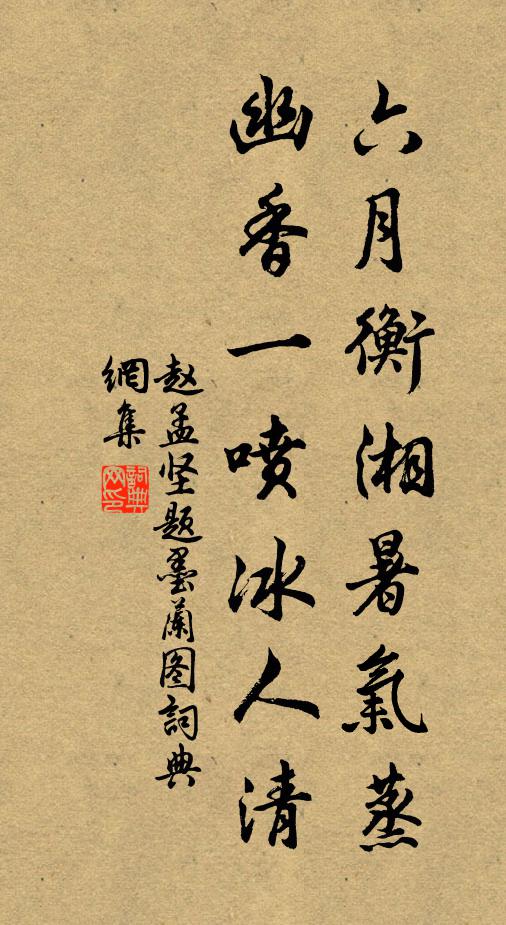 六月衡湘暑氣蒸
幽香一喷冰人清
赵孟坚题墨蘭图詞典
網集
詞典
网印